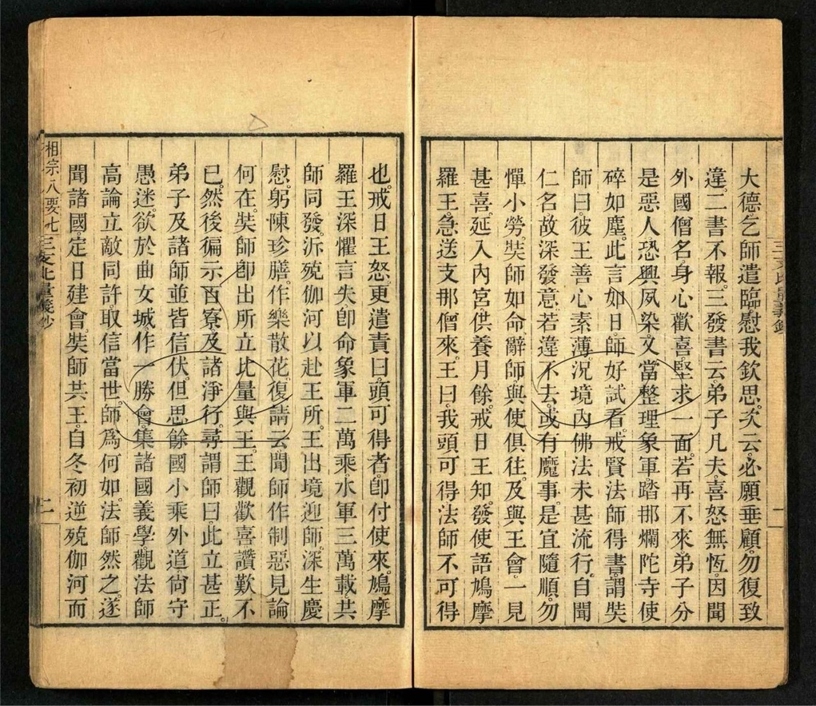 大德乞師遣臨慰我欽思次云必願垂顧勿復致
違二書不報三發書云弟子凡夫喜怒無恆因聞
外國僧名身心歡喜堅求一面若再不來弟子分
是惡人恐興夙染又當整理象軍踏挪爛陀寺使
碎如塵此言如日師好試看戒賢法師得書謂奘
師曰彼王善心素薄況境內佛法未甚流行自聞
仁名故深發意若違不去或有魔事是宜隨順勿
憚小勞奘師如命辭師與使俱往及與王會一見
甚喜延入內宮供養月餘戒日王知發使語鳩摩
羅王急送支那僧來王曰我頭可得法師不可得
一
也戒日王怒更遣責曰頭可得者卽付使來鳩摩
羅王深懼言失卽命象軍二萬乘水軍三萬載共
師同發泝殑伽河以赴王所王出境迎師深生慶
慰躬陳珍膳作樂散花復請云聞師作制惡見論
何在奘師卽出所立比量與王王觀歡喜讚歎不
已然後徧示百寮及諸淨行尋謂師曰此立甚正
弟子及諸師並皆信伏但思餘國小乘外道尙守
愚迷欲於曲女城作一勝會集諸國義學觀法師
高論立敵同許取信當世師爲何如法師然之遂
聞諸國定日建會奘師共王自冬初逆殑伽河而
相宗八要七 三支比量義鈔 二